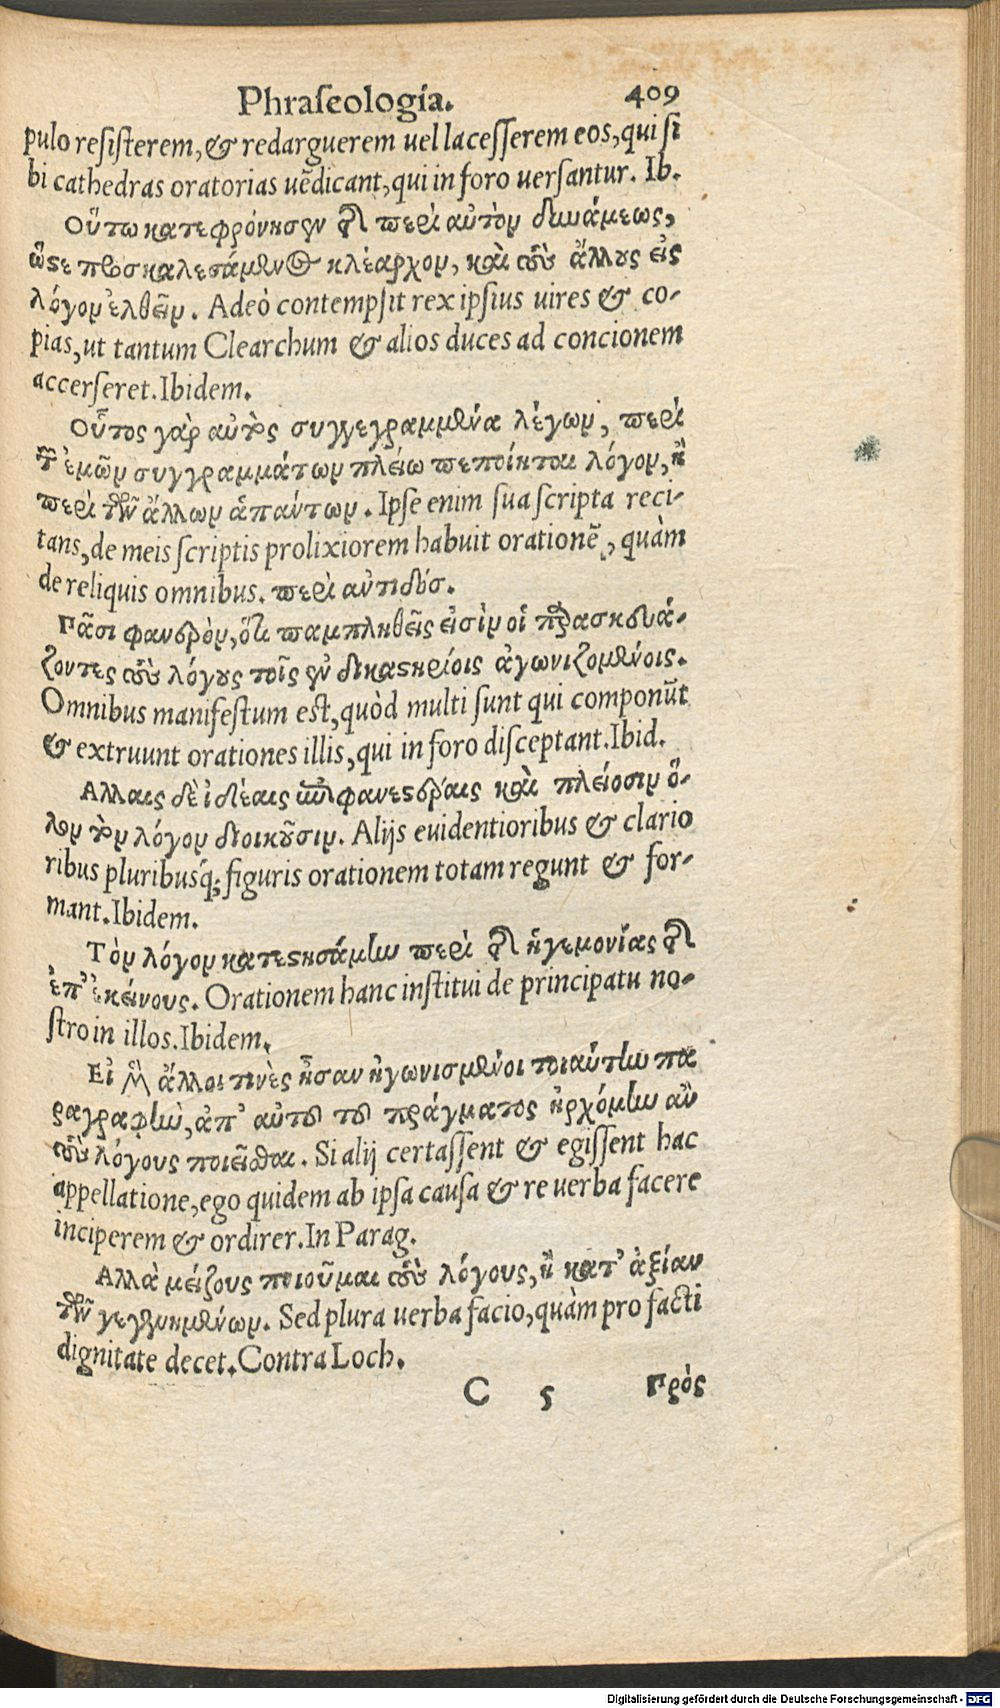 Phraseologia. 409
pulo resisterem, & redarguerem uel lacesserem eos, qui si
bi cathedras oratorias uẽdicant, qui in foro uersantur. Ib.
Οὕτω κατεφρόνησεν τῆς περὶ αὐτὸν δυνάμεως,
ὥστε προσκαλεσάμενος κλέαρχον, καὶ τοὺς ἄλλους εἰς
λόγον ἐλθεῖν. Adeò contempsit rex ipsius uires & co-
pias, ut tantum Clearchum & alios duces ad concionem
accerseret. Ibidem.
Οὗτος γὰρ αὐτὸς συγγεγραμμένα λέγων, περὶ
τῶν ἐμῶν συγγραμμάτων πλείω πεποίηται λόγον, ἢ
περὶ τῶν ἄλλων ἁπάντων. Ipse enim sua scripta reci-
tans, de meis scriptis prolixiorem habuit orationẽ, quàm
de reliquis omnibus. περὶ αὐτιδόσ.
Πᾶσι φανερὸν, ὅτι παμπληθεῖς εἰσὶν οἱ παρασκευά-
ζοντες τοὺς λόγους τοῖς ἐν δικαστηρίοις ἀγωνιζομένοις.
Omnibus manifestum est, quòd multi sunt qui componũt
& extruunt orationes illis, qui in foro disceptant. Ibid.
Αλλαις δὲ ἰδέαις ἐπιφανεστέραις καὶ πλείοσιν ὅ-
λον τὸν λόγον διοικοῦσιν. Alijs euidentioribus & clario
ribus pluribusq́; figuris orationem totam regunt & for-
mant. Ibidem.
Τὸν λόγον κατεστησάμην περὶ τῆς ἡγεμονίας τῆς
ἐπ' ἐκείνους. Orationem hanc institui de principatu no-
stro in illos. Ibidem.
Εἰ μὲν ἄλλοι τινὲς ἦσαν ἠγωνισμένοι τοιαύτην πα
ραγραφὴν, ἀπ' αὐτοῦ τοῦ πράγματος ἠρχόμην ἂν
τοὺς λόγους ποιεῖσθαι. Si alij certassent & egissent hac
appellatione, ego quidem ab ipsa causa & re uerba facere
inciperem & ordirer. In Parag.
Αλλὰ μείζους ποιοῦμαι τοὺς λόγους, ἢ κατ' ἀξίαν
τῶν γεγενημένων. Sed plura uerba facio, quàm pro facti
dignitate decet. Contra Loch.
C 5 Πρὸς
Digitalisierung gefördert durch die Deutsche Forschungsgemeinschaft - DFG